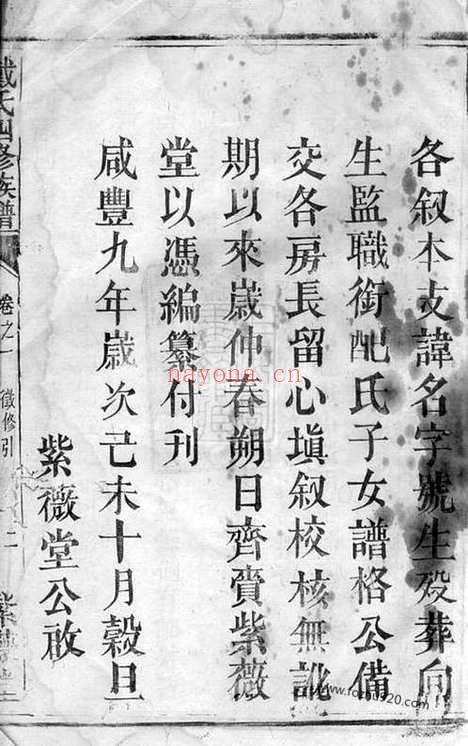 各叙本支諱名字號生殁葬向
生監職銜配氏子女譜格公備
交各房長留心填叙校核無訛
期以來歲仲春朔日齊賫紫薇
堂以憑編纂付刊
咸豐九年歲次己未十月榖旦
紫薇堂公啟
戴氏四修族譜
卷之一
徵修引
二
nayong.cn